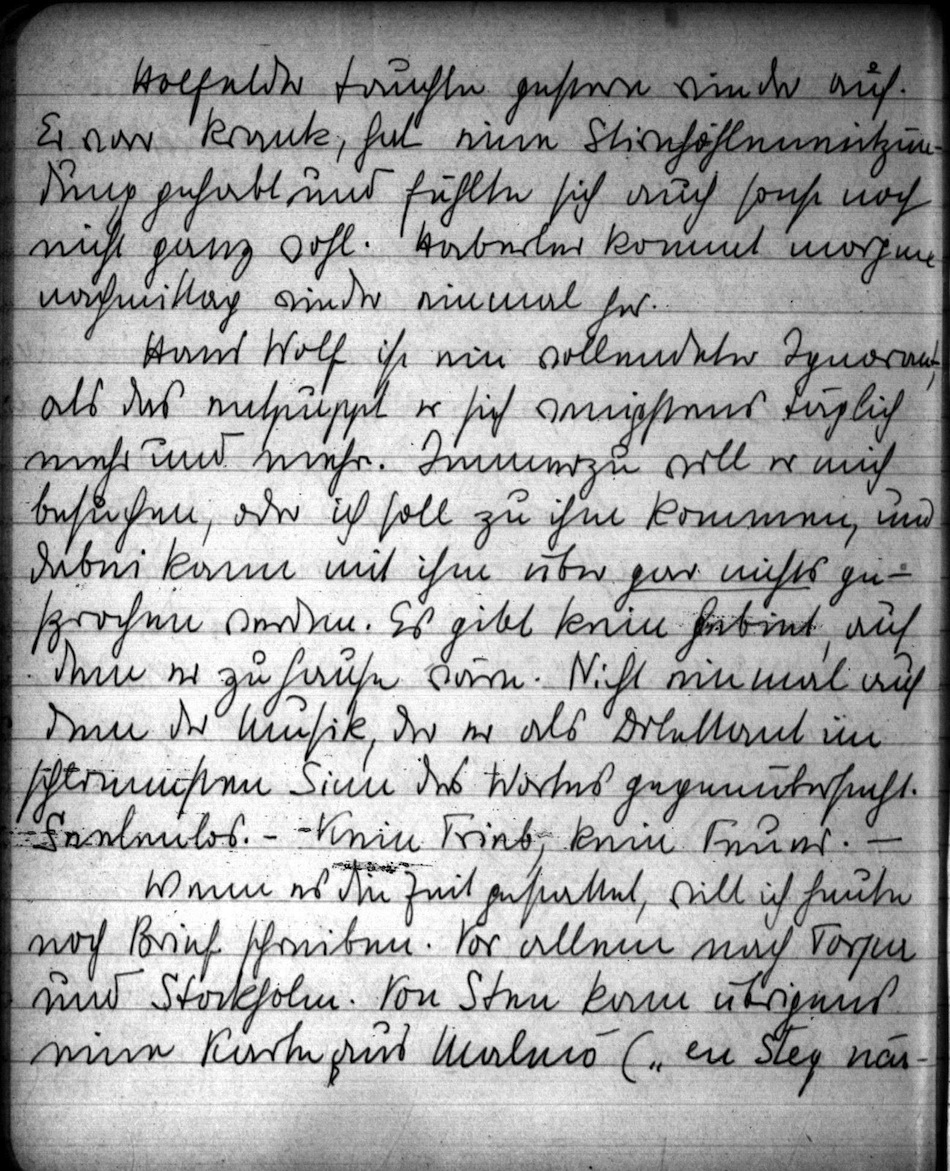 Holfelder tauchte gestern wieder auf.
Er war krank, hat eine Stirnhöhlenentzün-
dung gehabt und fühlte sich auch sonst noch
nicht ganz wohl. Haberler kommt morgen
nachmittag wieder einmal her.
Hans Wolf ist ein vollendeter Ignorant,
als das entpuppt er sich wenigstens täglich
mehr und mehr. Immerzu will er mich
besuchen, oder ich soll zu ihm kommen, und
dabei kann mit ihm über gar nichts ge-
sprochen werden. Es gibt kein Gebiet, auf
dem er zu hause wäre. Nicht einmal auf
dem der Musik, der er als Dilettant im
schlimmsten Sinn des Wortes gegenübersteht.
Seelenlos. - - Kein Trieb, kein Feuer. -
Wenn es die Zeit gestattet, will ich heute
noch Brief schreiben. Vor allem nach Torpa
und Stockholm. Von Sten kam übrigens
eine Karte aus Malmö („en Steg när-